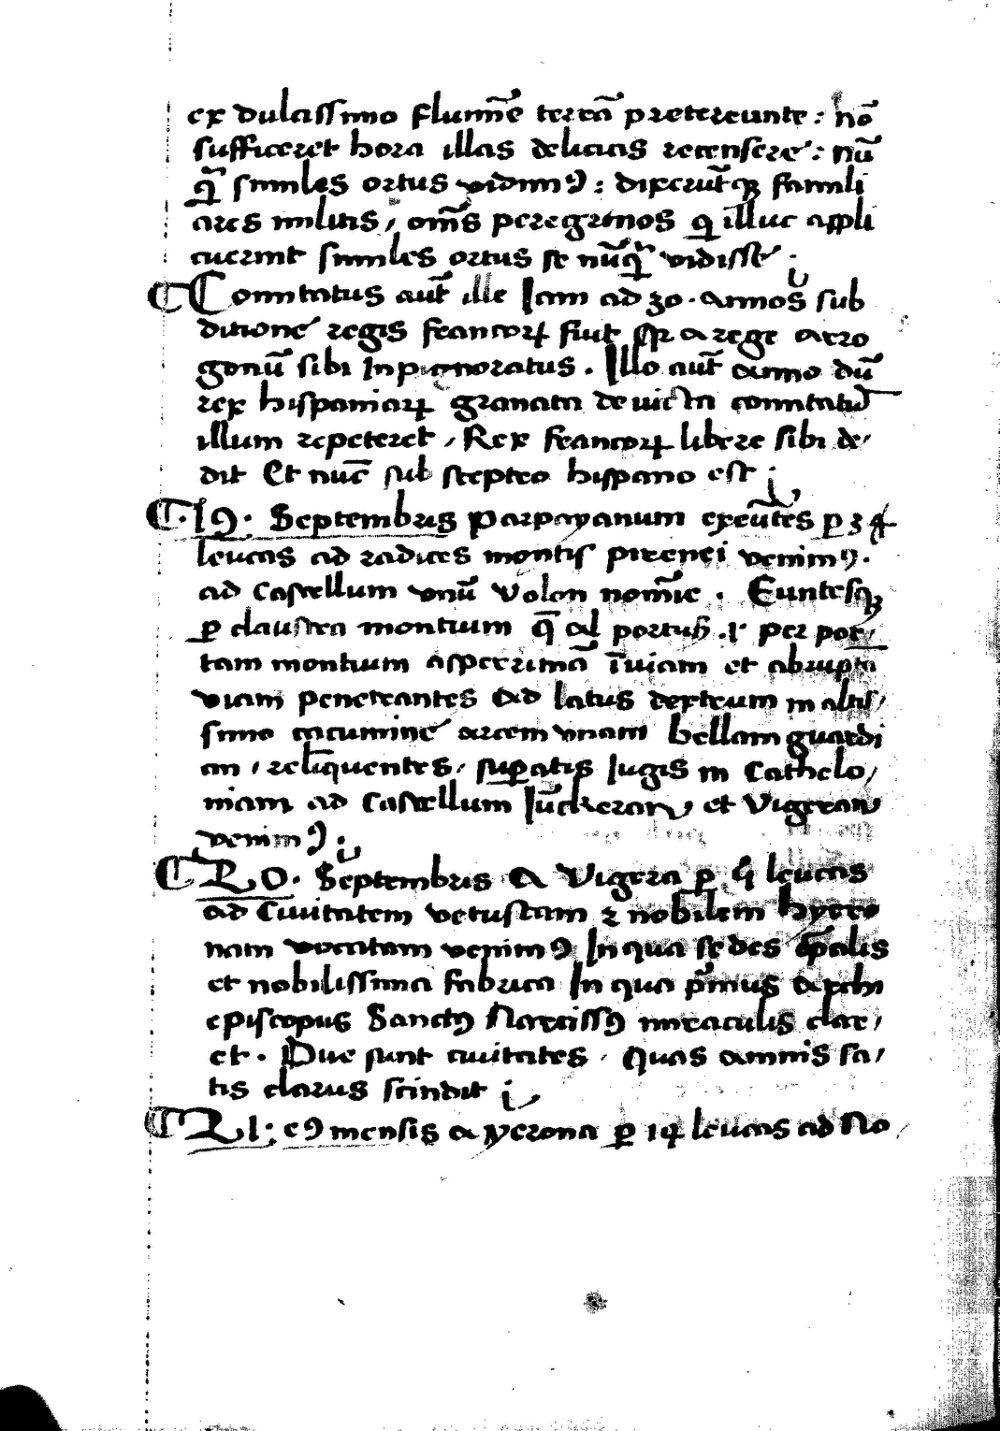 ex dulcissimo flumīe terrā pretereunte : nō
sufficeret hora illas delicias recensere : nū
qͣ similes ortus vidimꝰ : dixerūtqꝫ famili
ares militis / om̄s peregrinos qͥ illuc appli
cuerint similes ortus se nūqͣ vidisse .
Comitatus aut̄ ille Iam ad 30 . annos sub
ditione regis francorꝝ fuit a rege arro
gonū sibi Inpignoratus . Illo aut̄ anno dū
rex hispaniarꝝ granata devicta comitatū
illum repeteret / Rex francorꝝ libere sibi de/
dit Et nūc sub sceptro hispano est ;
19 . Septembris Parpayanum exeūtes ꝑ 34
leucas ad radices montis pirenei venimꝰ .
ad castellum vnū volon nomīe . Euntesqꝫ
ꝑ claustra montium q̄ al portus .i. per por/
tam montium asperrimā īviam et abruptā
viam penetrantes Ad latus dextrum in altis/
simo cacumine arcem vnam bellam guardi
an / reliquentes / suꝑatis Iugis in Cathelo/
niam ad castellum Iūckeram et Vigeran
venimꝰ ;
20 . Septembris A Vigera ꝑ leucas
ad Civitatem vetustam 2 nobilem hyero
nam vocatam venimꝰ In qua sedes ep̄alis
et nobilissima fabrica In qua pͥmus archi
episcopus Sanctꝰ Narcissꝰ miraculis clar/
et . Due sunt civitates . Quas amnis sa/
tis clarus scindit ;
21 : eꝰ mensis a yerona ꝑ 14 leucas ad No